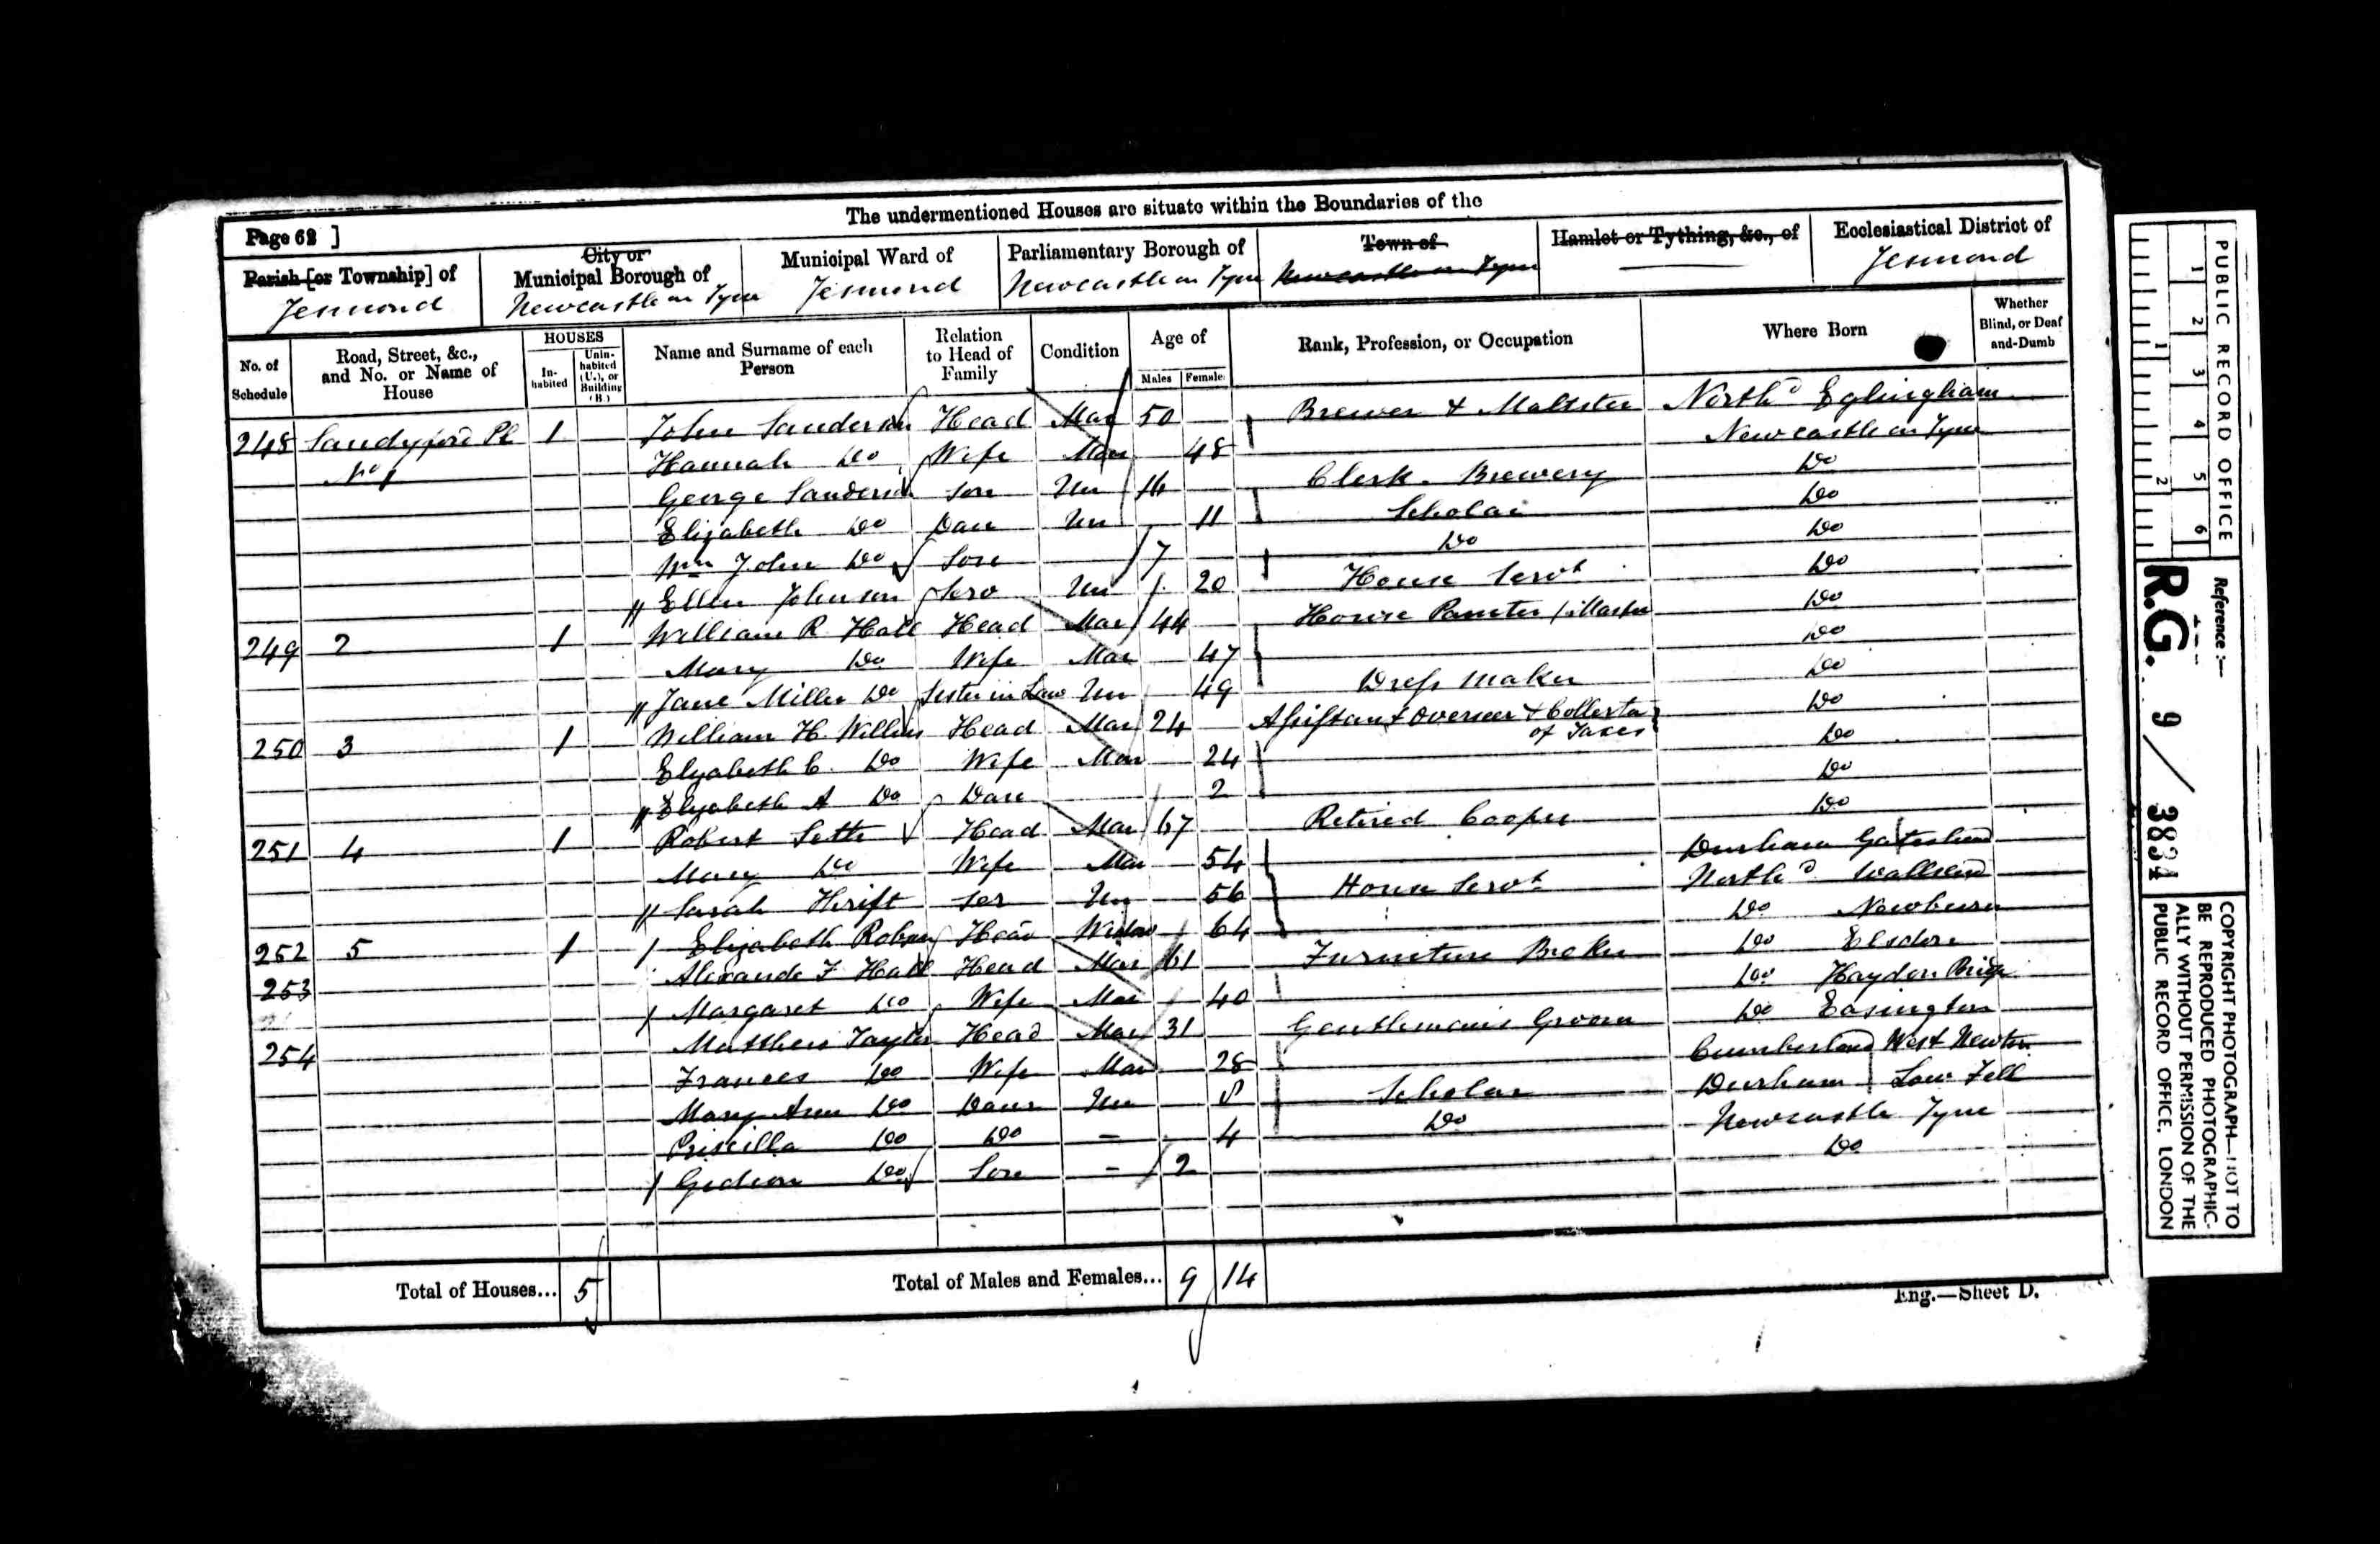 The undermentioned Houses are situate within the Boundaries of the
Page 62 ]
Parish [or Township] of
Jesmond
City or
Municipal Borough of
Newcastle on Tyne
Municipal Ward of
Jesmond
Parliamentary Borough of
Newcastle on Tyne
Town of
Newcastle on Tyne
Hamlet or Tything, &c., of
Ecclesiastical District of
Jesmond
No. of Schedule
Road, Street, &c., and No. or Name of House
HOUSES
In-habited
Unin-habited (U.), or Building (B.)
Name and Surname of each Person
Relation to Head of Family
Condition
Age of
Males Females
Rank, Profession, or Occupation
Where Born
Whether Blind, or Deaf-and-Dumb
248 Sandyford Pl 1 John Sanderson Head Mar 50 Brewer & Maltster North'd Eglingham
No 1 Hannah Do Wife Mar 48 Newcastle on Tyne
George Sanderson Son Un 16 Clerk. Brewery Do
Elizabeth Do Dau Un 11 Scholar Do
Wm John Do Son 7 Do Do
Ellen Johnson Serv Un 20 House Servt Do
249 2 1 William R. Hall Head Mar 44 House Painter (Master Do
Mary Do Wife Mar 47 Do
Jane Miller Do Sister in Law Un 49 Dress maker Do
250 3 1 William H. Head Mar 24 Assistant Overseer & Collector of Taxes Do
Elizabeth C. Do Wife Mar 24 Do
Elizabeth A Do Dau 2 Do
251 4 1 Robert Head Mar 67 Retired Cooper Do
Mary Do Wife Mar 54 Durham Gateshead
Sarah Thrift Ser Un 56 House Servt North'd Wallsend
252 5 1 Elizabeth Head Widow 64 Do Newburn
253 Alexander F Hall Head Mar 61 Furniture Broker Do Elsdon
Margaret Do Wife Mar 40 Do Haydon Bridge
254 Matthew Taylor Head Mar 31 Gentleman's Groom Do Easington
Frances Do Wife Mar 28 Cumberland West Newton
Mary Ann Do Daur Un 8 Scholar Durham Low Fell
Priscilla Do Do - 4 Do Newcastle Tyne
Gedeon Do Son - 2 Do
Total of Houses... 5
Total of Males and Females... 9 14
Eng.—Sheet D.
PUBLIC RECORD OFFICE
1 2 3 4 5 6
1 2
Reference :—
R.G. 9/3834
COPYRIGHT PHOTOGRAPH—NOT TO
BE REPRODUCED PHOTOGRAPHIC-
ALLY WITHOUT PERMISSION OF THE
PUBLIC RECORD OFFICE, LONDON